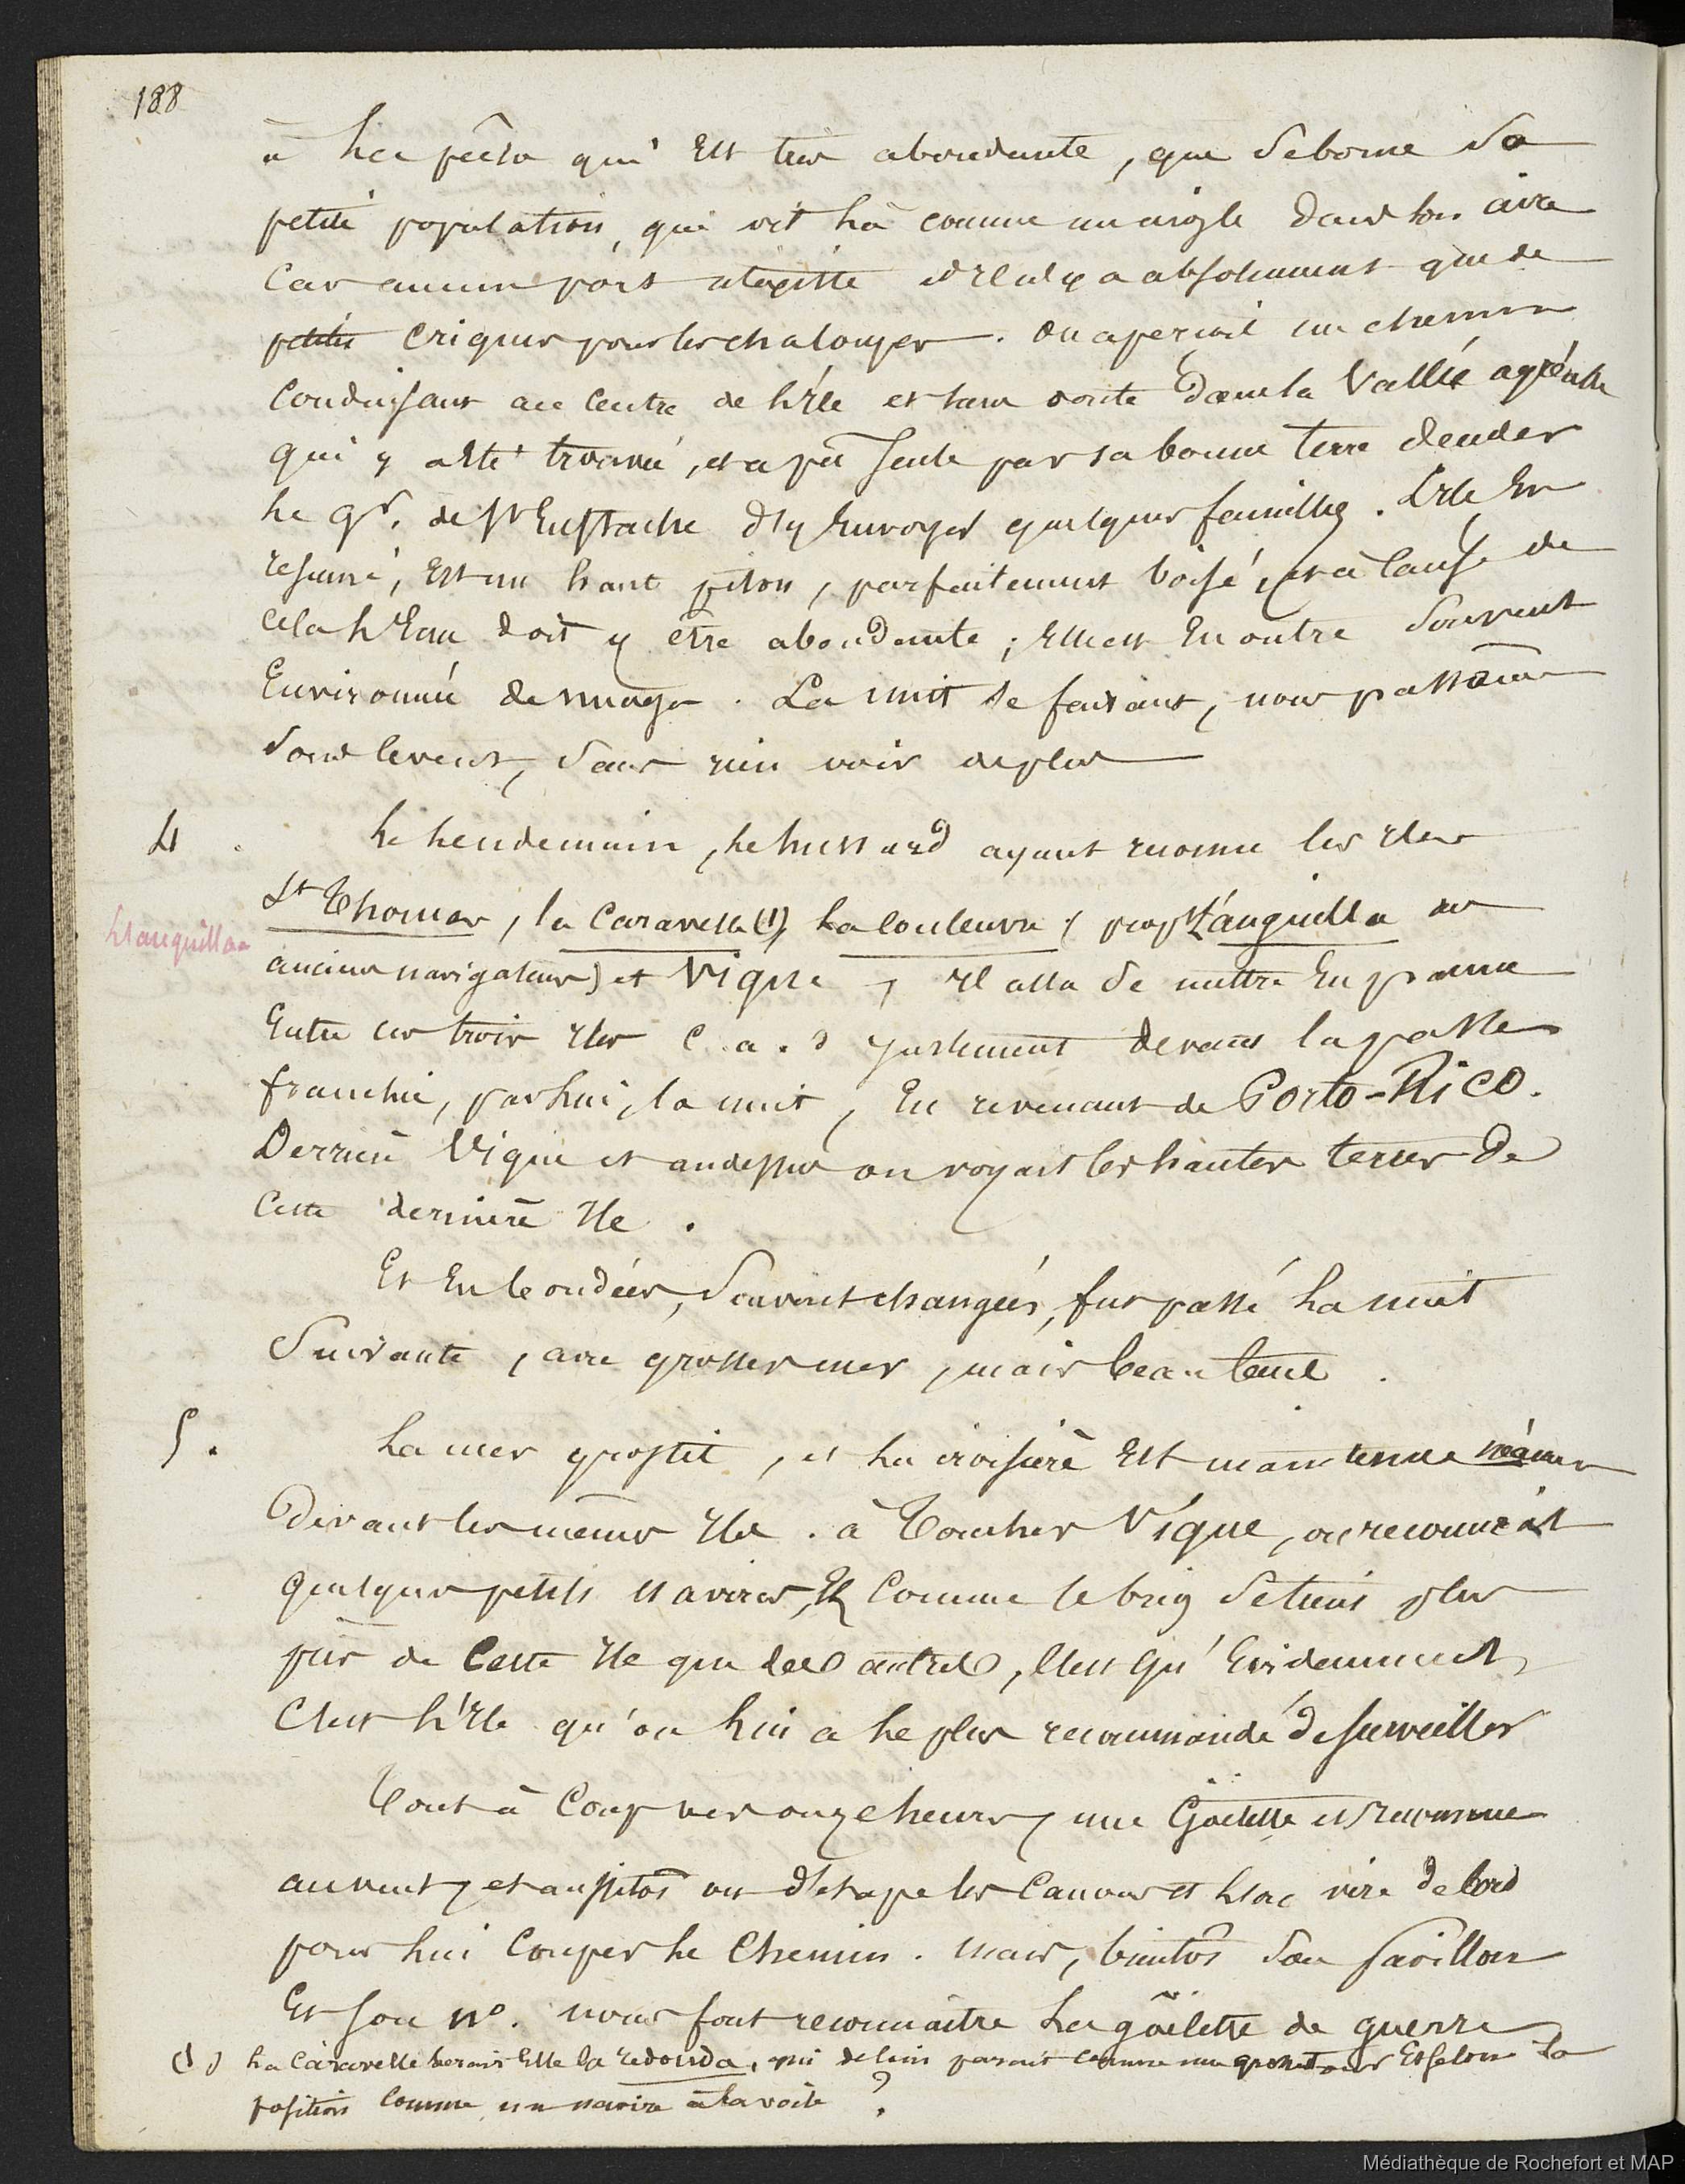 188
à la pêche qui est très abondante, que se borne sa
petite population, qui vit là comme un aigle dans son aire
car aucun port n'existe et il n'y a absolument que de
petites criques pour les chaloupes. on aperçoit un chemin
conduisant au centre de l'île et sans doute dans la vallée agréable
qui y a été trouvée, et a pu seule par sa bonne terre
le gr. de St Eustache d'y envoyer quelques familles. L'île en
resumé, est un haut piton, parfaitement boisé, et à cause de
cela l'eau doit y être abondante; elle est en outre souvent
environnée de nuages. La nuit se faisant, nous passâmes
sous le vent, sans rien voir de plus
4. Le lendemain, le hussard ayant reconnu les iles
St Thomas, la Caravelle (1), la Couleuvre (
l'anguilla
L'anguilla
anciens navigateurs) et Vigne, il alla se mettre en panne
entre ces trois iles c. a. d justement devant la passe
franchie, par lui, la nuit, en revenant de Porto-Rico.
Derrière Vigne et au dessus on voyait les hautes terres de
cette dernière ile.
Et en bordées, souvent changées, fut passé la nuit
suivante, avec grosse mer, mais beau tems.
5. La mer grossit, et la croisière est maintenue
devant les mêmes iles. à toucher Vigne, on reconnait
quelques petits navires, et comme le brig se tient plus
près de cette ile que des autres, c'est qu'évidemment
c'est l'ile qu'on lui a le plus recommandé de surveiller
Tout à coup vers onze heures, une Goëlette est reconnue
au vent, et aussitôt on detape les canons et l'on vire de bord
pour lui couper le chemin. mais, bientôt son pavillon
et son n°. nous font reconnaitre la goëlette de guerre
(1) La caravelle serait elle la redonda, qui de loin parait comme une et selon la
position comme un navire à la voile?
Médiathèque de Rochefort et MAP